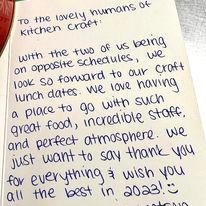 To the lovely humans of
Kitchen Craft:
With the two of us being
on opposite schedules, we
look so forward to our craft
lunch dates. We love having
a place to go with such
great food, incredible staff,
and perfect atmosphere. We
just want to say thank you
for everything & wish you
all the best in 2023! :)